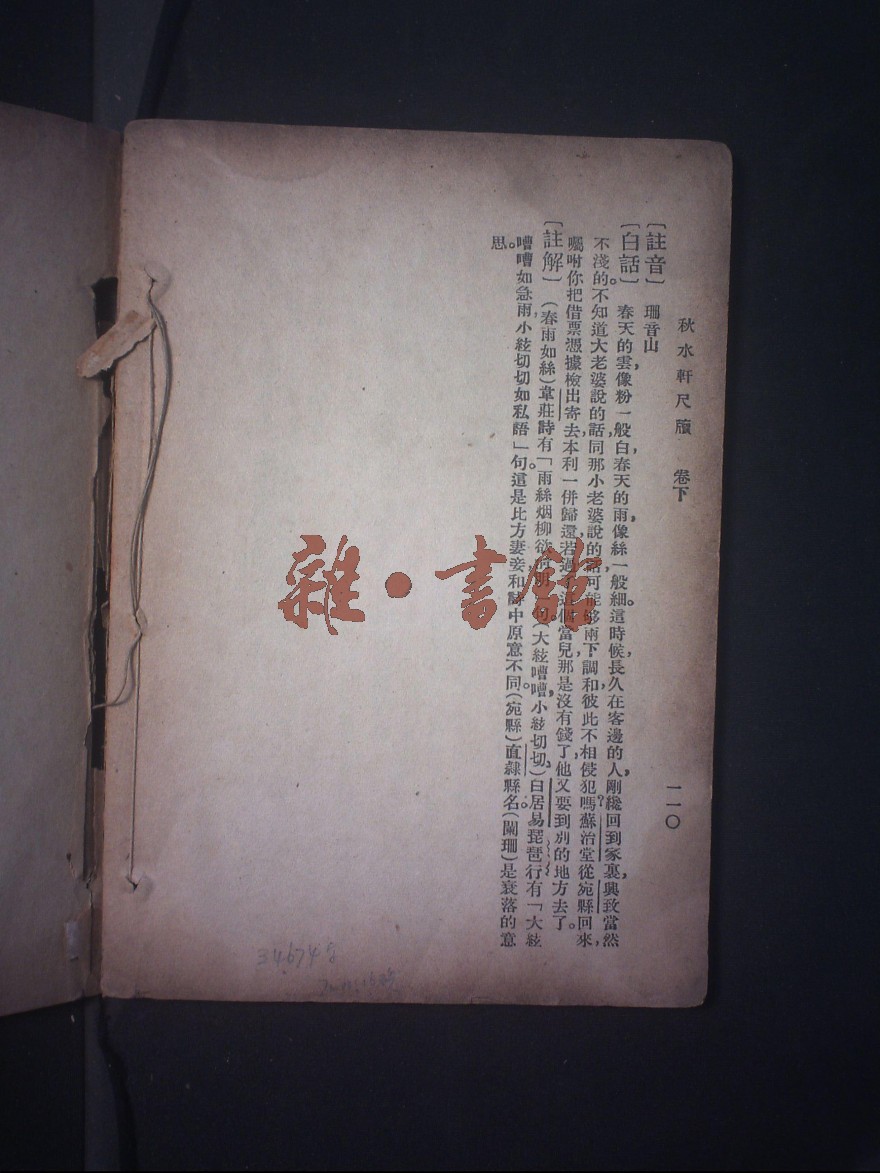 秋水軒尺牘　卷下
一一〇
〔註音〕　珊音山
〔白話〕　春天的雲，像粉一般白，春天的雨，像絲一般細。這時候，長久在客邊的人，剛纔回到家裏，興致當然
不淺的。不知道大老婆說的話，同那小老婆說的話，可能够兩下調和，彼此不相侵犯嗎？蘇治堂從宛縣回來，
囑咐你把借票憑據檢出寄去，本利一併歸還，若過個當兒，那是沒有錢了，他又要到別的地方去了。
〔註解〕　（春雨如絲）韋莊詩有「雨絲烟柳欲句。（大絃嘈嘈，小絃切切）白居易琵琶行有「大絃
嘈嘈如急雨，小絃切切如私語」句。這是比方妻妾，和詩中原意不同。（宛縣）直隸縣名。（闌珊）是衰落的意
思。
雜・書館